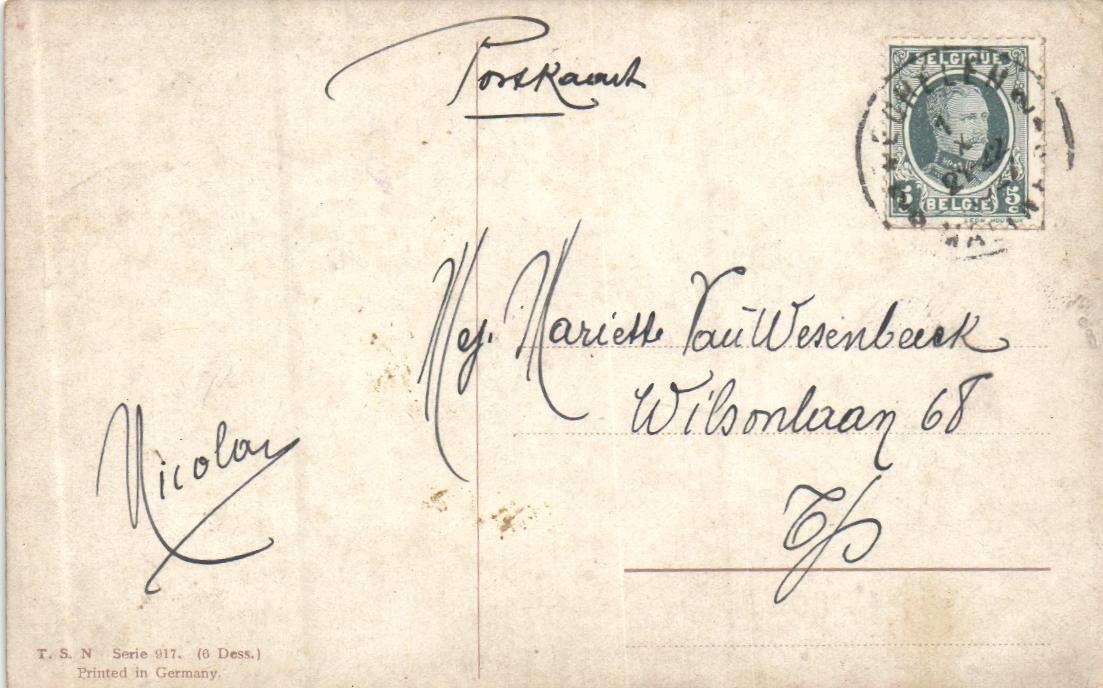 Postkaart
BELGIQUE
MECHELEN 2
5
BELGIE
5
c
Mej. Mariette Van Wesenbeeck
Wilsonlaan 68
Nicolas
T. S. N Serie 917. (6 Dess.)
Printed in Germany.